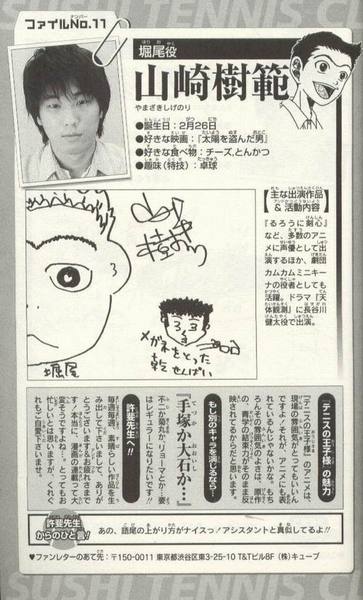 SHUEISHA TENNIS CLUB
ナンバー
ファイルNo.11
ほりおやく
堀尾役
山崎樹範
やまざきしげのり
●誕生日：2月26日
●好きな映画：『太陽を盗んだ男』
●好きな食べ物：チーズ、とんかつ
●趣味（特技）：卓球
【主な出演作品
＆活動内容】
『るろうに剣心』
など、多数のアニ
メに声優として出
演するほか、劇団
カムカムミニキー
ナの役者としても
活躍。ドラマ『天
体観測』に長谷川
健太役で出演。
堀尾
メガネをとった
乾せんぱい
『テニスの王子様』の魅力
『テニスの王子様』のアニメは、
現場の雰囲気がとてもいいん
ですよ！それが、アニメにも表
れているんじゃないかな。もち
ろんその雰囲気のよさは、原作
の、青学の結束力がそのまま反
映されてるからだと思います。
もし別のキャラを演じるなら…
『手塚か大石か…』
不二か菊丸かリョーマとか…要
はレギュラーになりたいです!!
許斐先生へ!!
毎週毎週、素晴らしい作品を生
み出して下さいまして、ありが
とうございます＆お疲れさまで
す。本当に、漫画の連載って大
変そうですよね…。とってもお
忙しいとは思いますが、くれぐ
れもご自愛下さいませ。
許斐先生
からのひと言！
あの、語尾の上がり方がナイスっ！アシスタントと真似してるよ!!
♥ファンレターのあて先：〒150-0011 東京都渋谷区東3-25-10 T&Tビル8F（株）キューブ